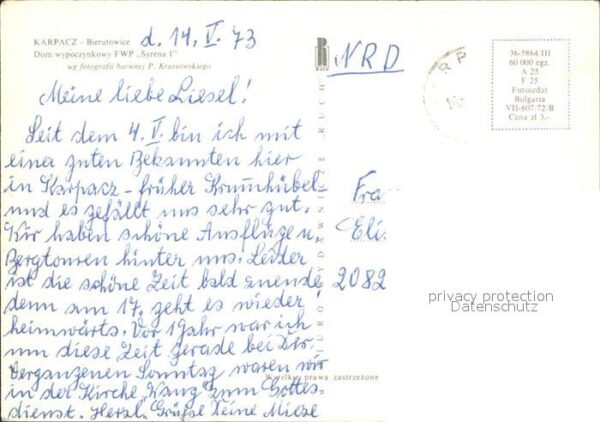 KARPACZ – Bierutowice
Dom wypoczynkowy FWP „Syrena I”
wg fotografii barwnej P. Krassowskiego
d. 14. V. 73
Meine liebe Liesel!
Seit dem 4. V. bin ich mit
einer guten Bekannten hier
in Karpacz – früher Krumhübel –
und es gefällt uns sehr gut.
Wir haben schöne Ausflüge u.
Bergtouren hinter uns. Leider
ist die schöne Zeit bald zuende
denn am 17. geht es wieder
heimwärts. Vor 1 Jahr war ich
um diese Zeit gerade bei Dir.
Vergangenen Sonntag waren wir
in der Kirche „Wang” zum Gottes-
dienst. Herzl. Grüße Deine Miese
BIURO WYDAWNICZE „RUCH”
wszelkie prawa zastrzeżone
RUCH
NRD
36-5864 III
60 000 egz.
A 25
F 25
Fotoizdat
Bulgaria
VII-607/72/B
Cena zł 3,-
Fra
Eli
2082
privacy protection
Datenschutz